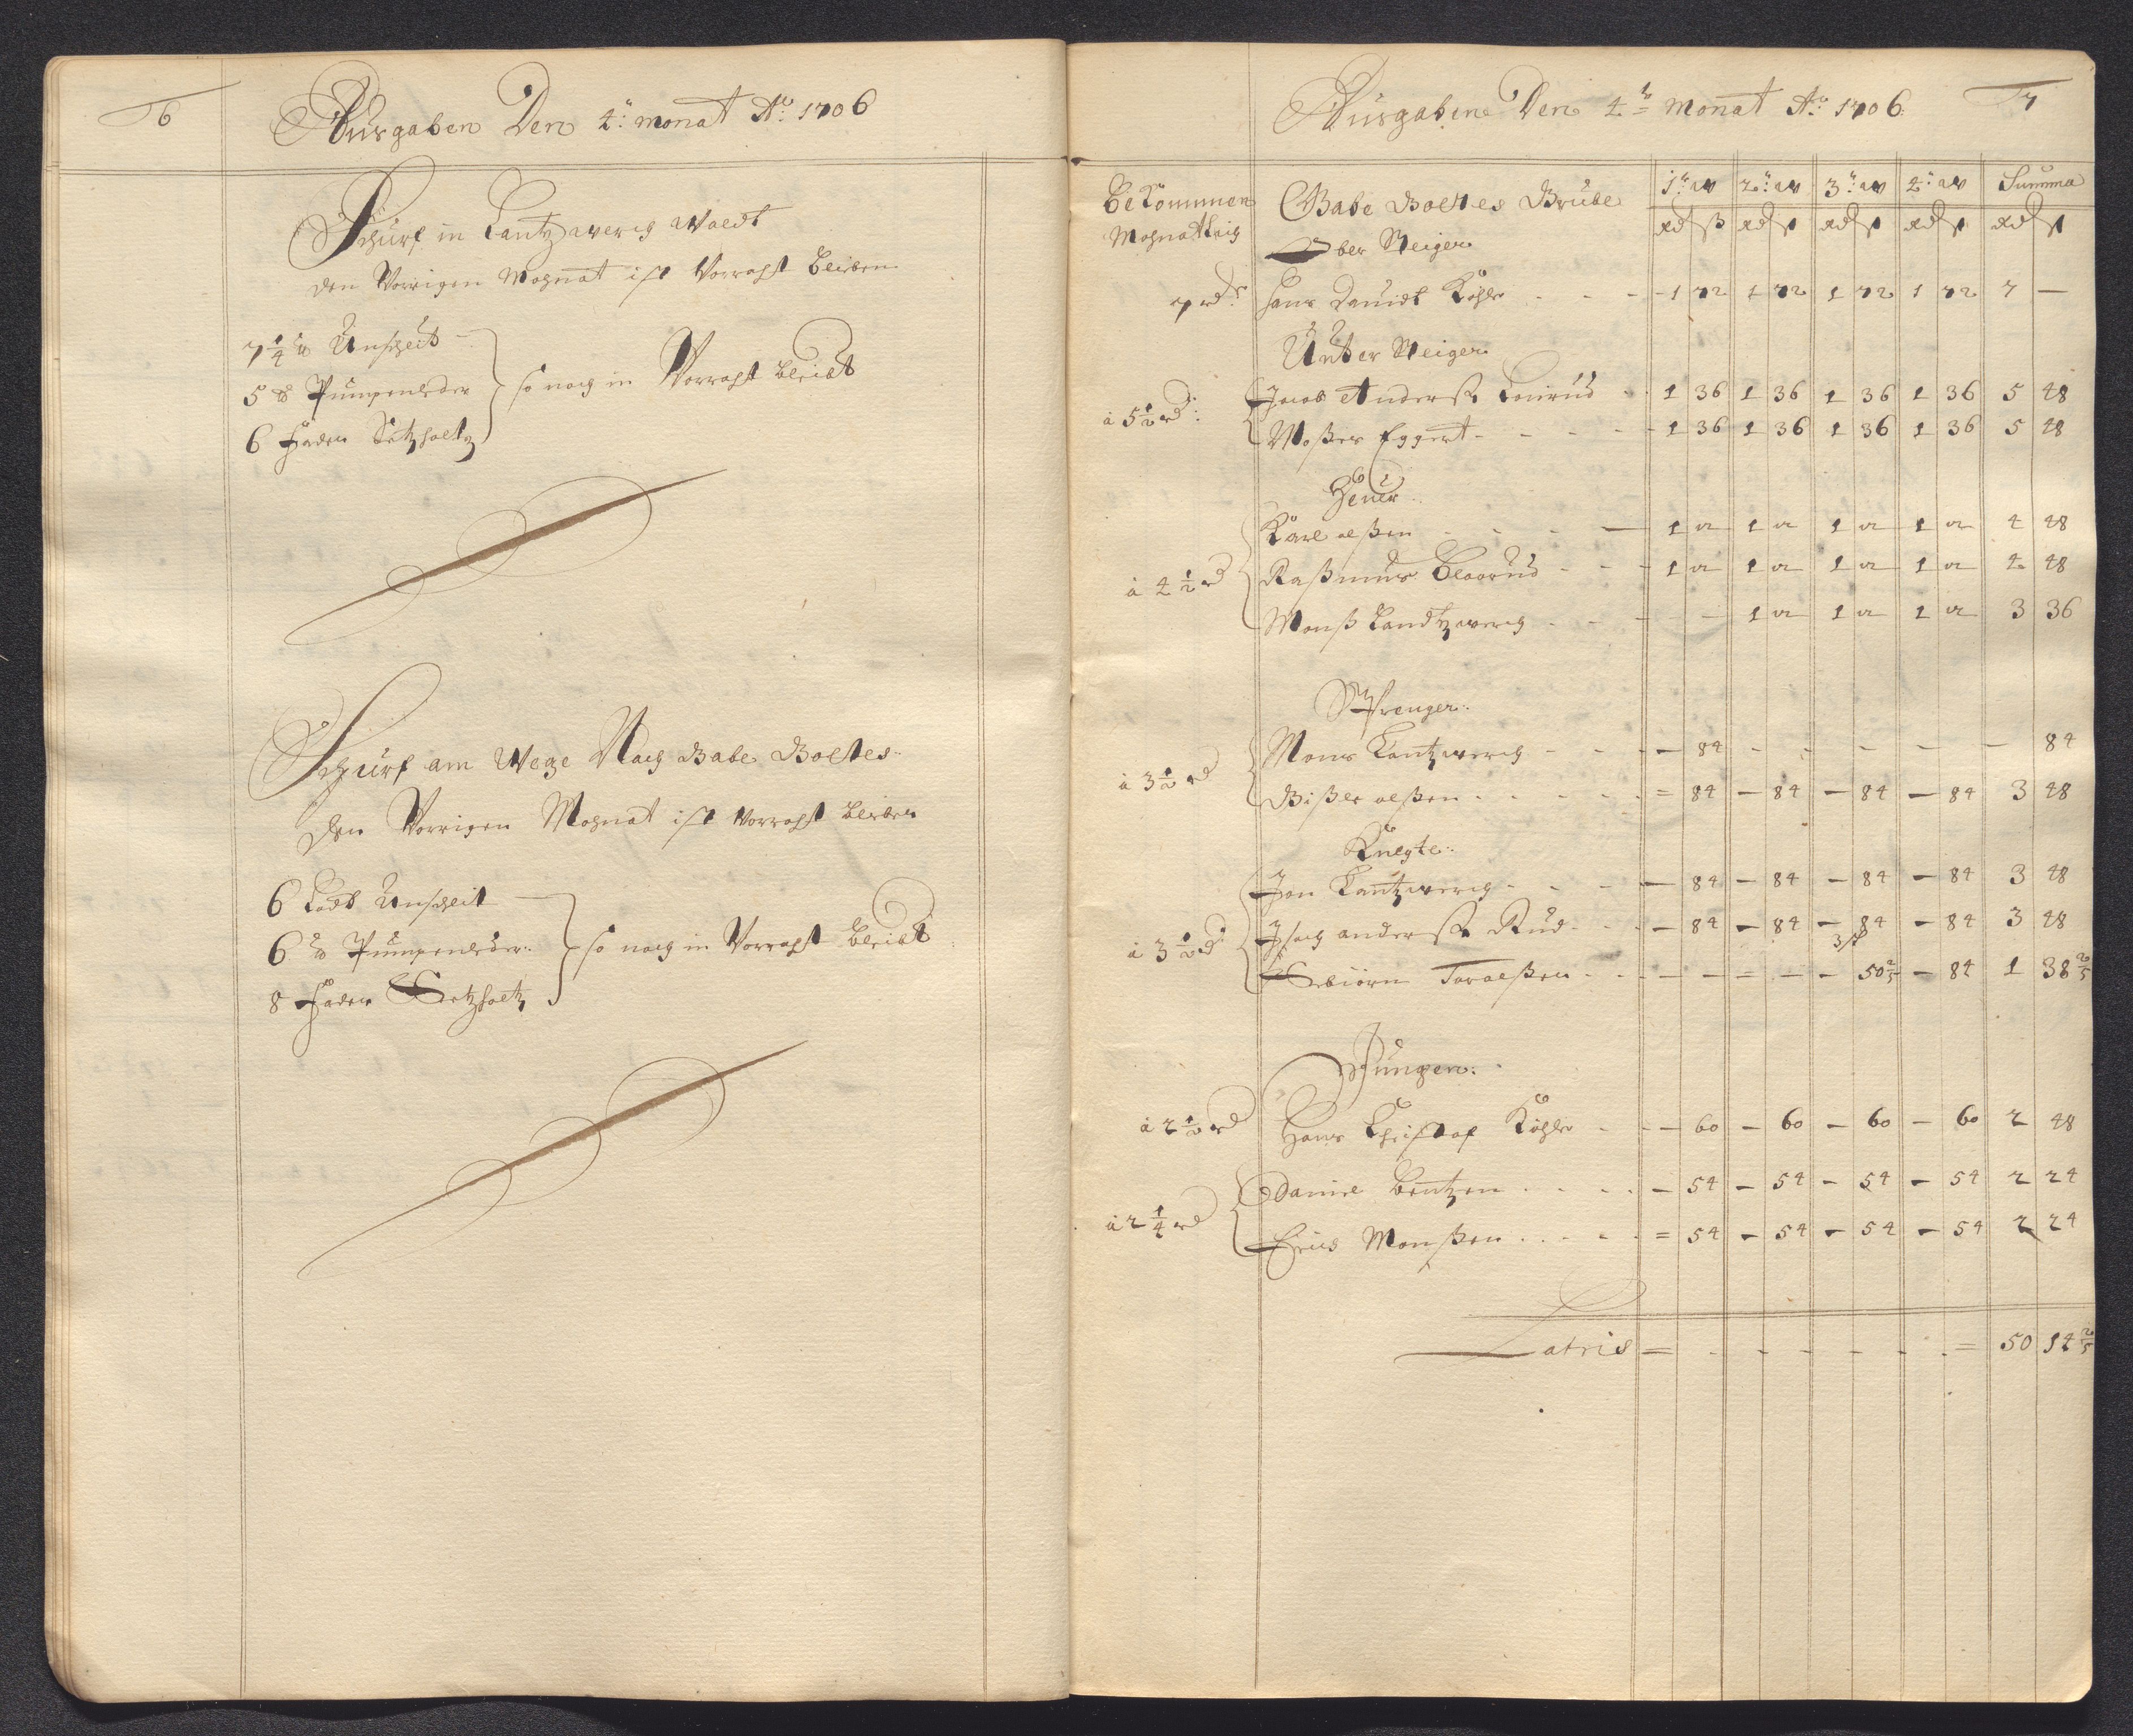 6
Ausgaben Den 4: monat Ao: 1706
Schurf in Lantz werg Waldt
den Vorrigen Mohnat ist Vorraht bleiben
7 1/4 lb Unscheit
5 lb Pumpenleder
6 Fader Setzholtz
so noch in Vorraht bleibt
Schurf am Wege Nach Babe Boltes
Den Vorrigen Mohnat ist Vorraht bleiben
6 Lodt Unscheit
6 lb Pumpenleder
8 Fader Setzholtz
so noch in Vorraht bleibt
Ausgaben Den 4te monat Ao: 1706 7
Bekommen Mohnatlich
Babe Boltes Grube 1te: aw 2te: aw 3te: aw 4te: aw Summa
Ober Steiger rd ß rd ß rd ß rd ß rd ß
7 rd: Hans Davidt Köhler - - - 1 72 1 72 1 72 1 72 7 —
Unter Steiger
à 5 1/2 rd: Jacob Anderß - - 1 36 1 36 1 36 1 36 5 48
Moßes Eggert - - - 1 36 1 36 1 36 1 36 5 48
Heuer
à 4 1/2 rd Karl olßen - - - 1 12 1 12 1 12 1 12 4 48
Raßmus - - - 1 12 1 12 1 12 1 12 4 48
Monß Landtzwerg - - - 1 12 1 12 1 12 3 36
Sprenger
à 3 1/2 rd Mons Lantzwerg - - - 84 - - - - - 84
olßen - - - = 84 — 84 — 84 — 84 3 48
Knegte
à 3 1/2 rd Jon Lantzwerg - - - 84 — 84 — 84 — 84 3 48
anderß Rud - - - 84 — 84 — 84 — 84 3 48
3 ß
Torolßen - - - - - - 50 2/5 — 84 1 38 2/5
Jungen
à 2 1/2 rd Hans Christof Köhler - - — 60 — 60 — 60 — 60 2 48
à 2 1/4 rd Daniel Bentzen - - - 54 — 54 — 54 — 54 2 24
Erich Monßen - - - = 54 — 54 — 54 — 54 2 24
Latris = - - - - - - = 50 14 2/5